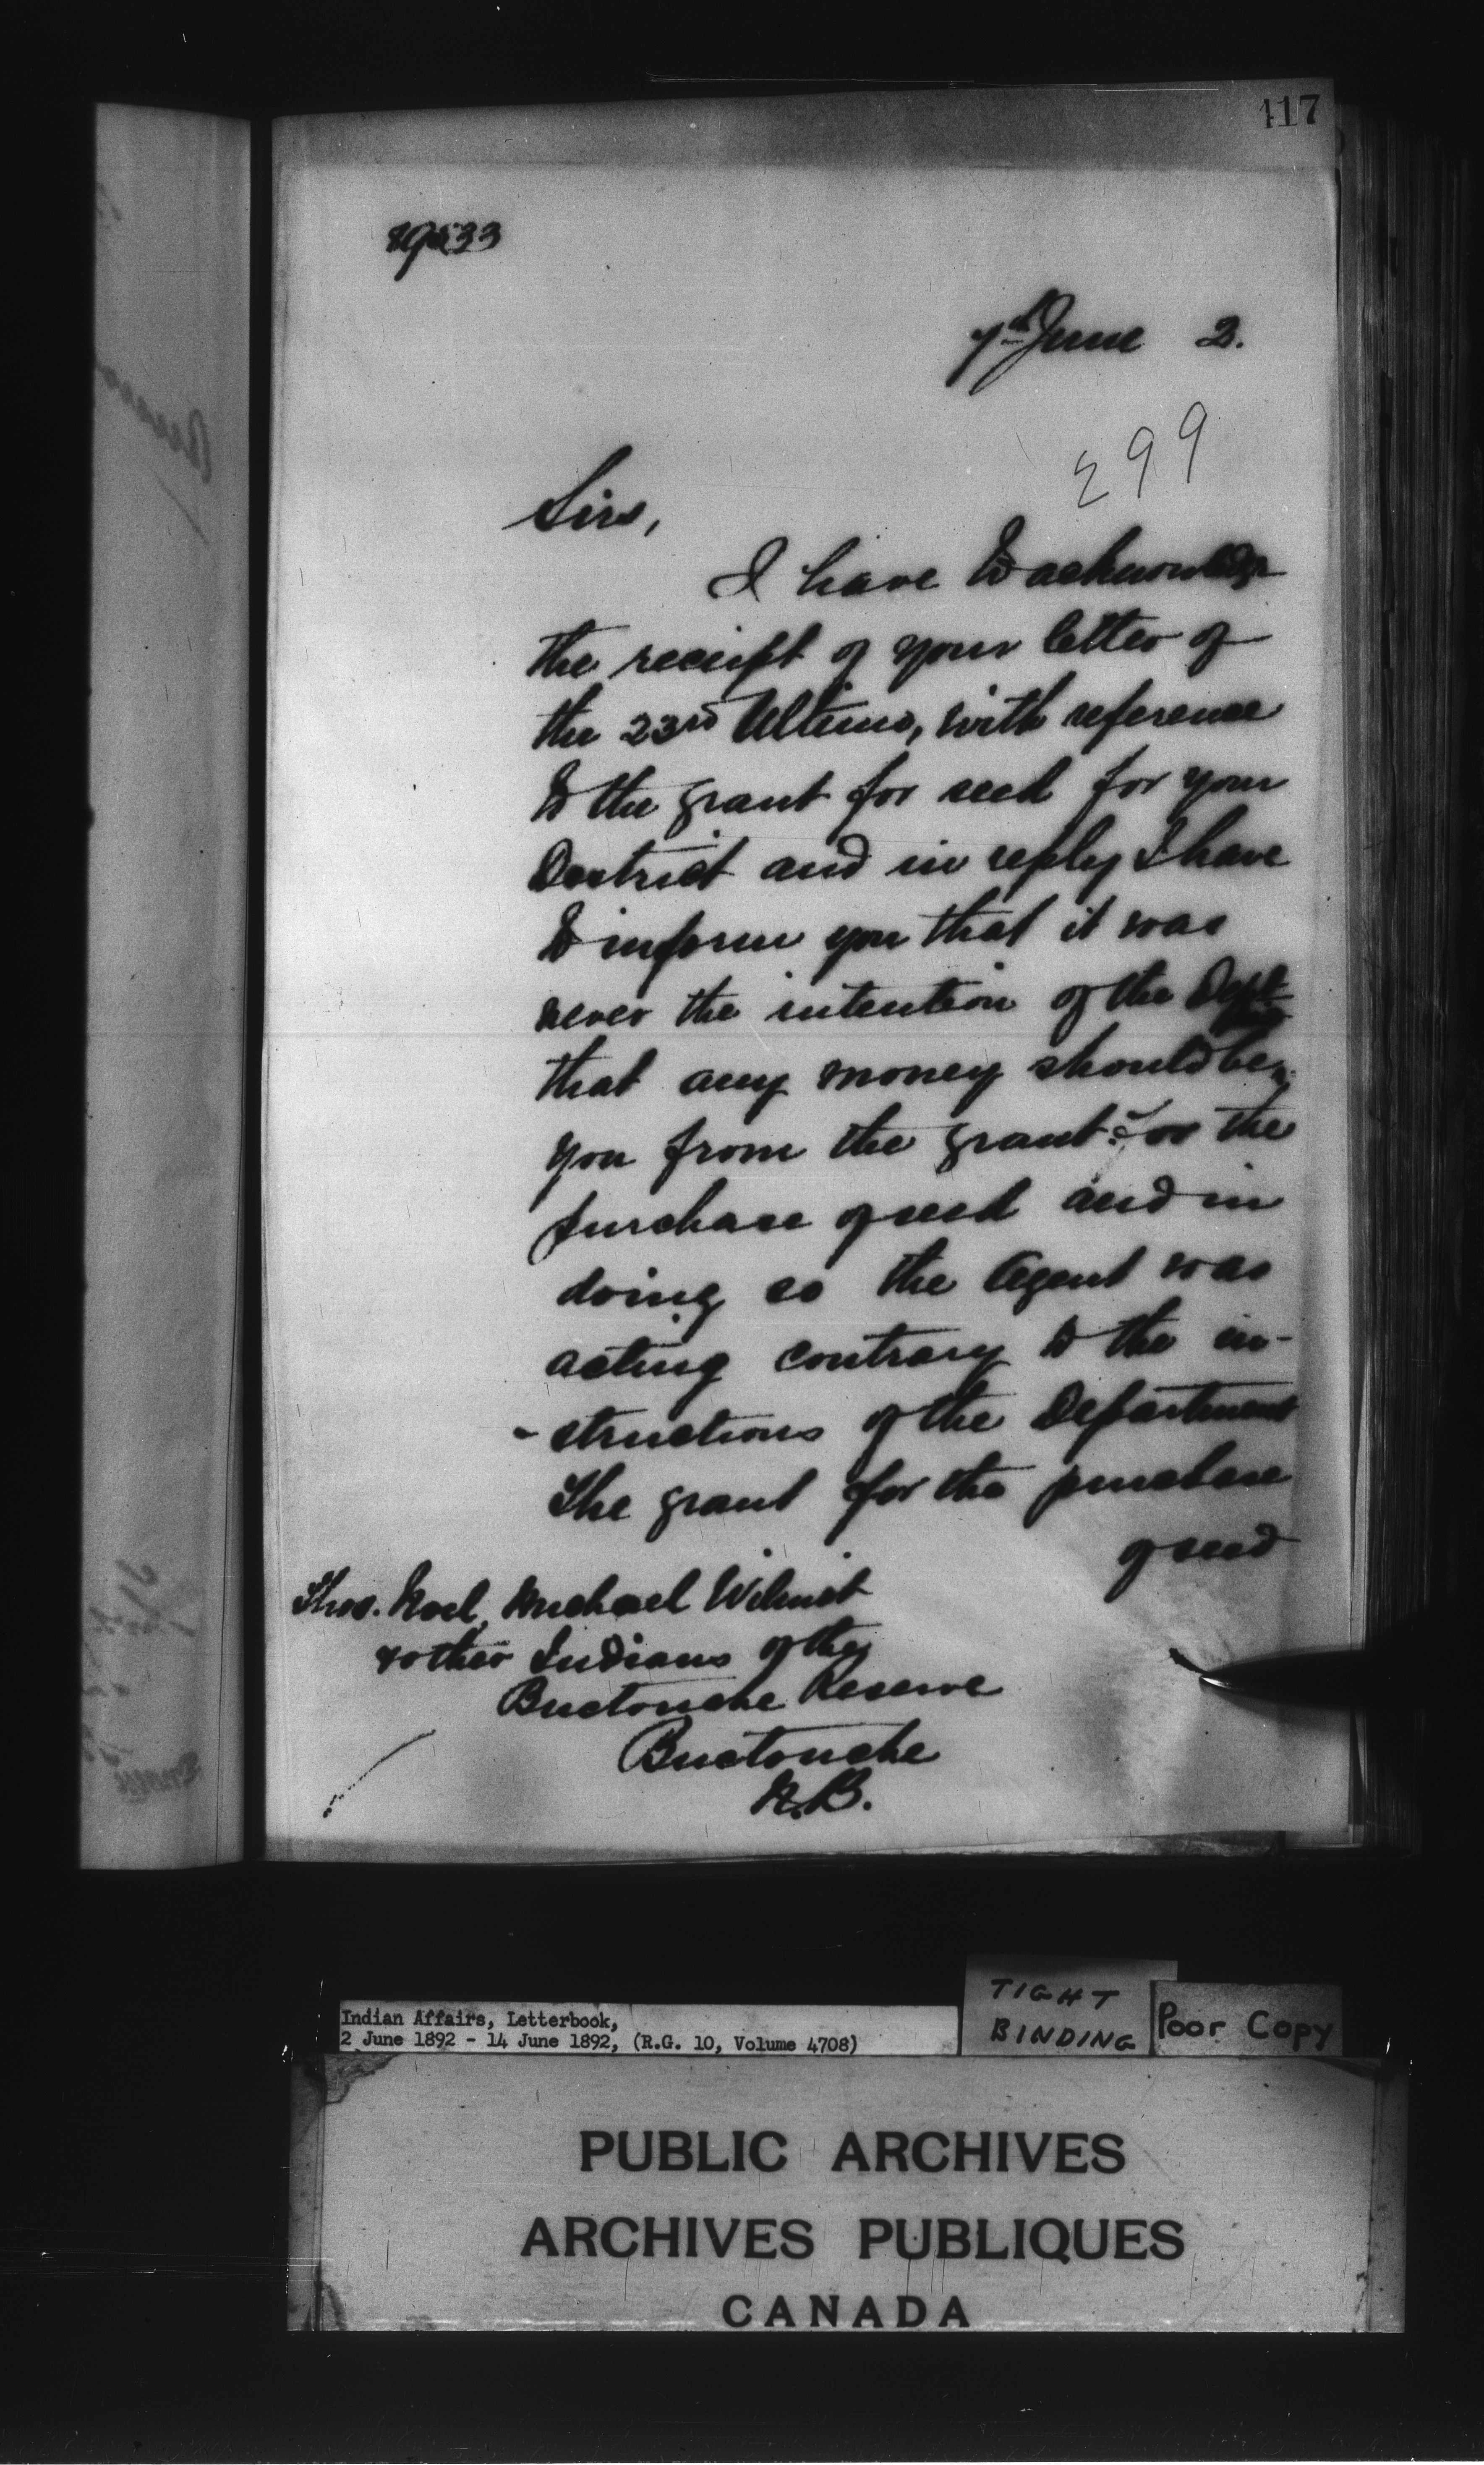 117
89533
7th June 2.
299
Sirs,
I have to acknowledge
the receipt of your letter of
the 23rd Ultimo, with reference
to the grant for seed for your
District and in reply I have
to inform you that it was
never the intention of the Dept
that any money should be
you from the grant for the
purchase of seed and in
doing so the Agent was
acting contrary to the in-
-structions of the Department
The grant for the purchase
of seed
Thos. Noel, Michael Wilmot
& other Indians of the
Buctouche Reserve
Buctouche
N.B.
Indian Affairs, Letterbook,
2 June 1892 - 14 June 1892, (R.G. 10, Volume 4708)
TIGHT
BINDING
Poor Copy
PUBLIC ARCHIVES
ARCHIVES PUBLIQUES
CANADA